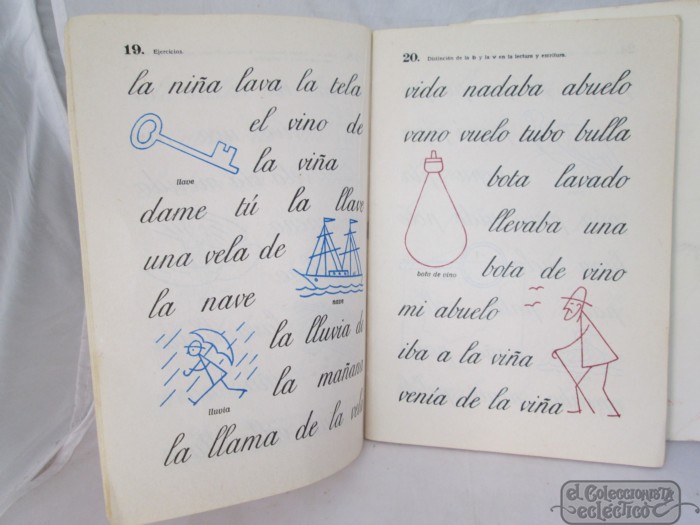 19. Ejercicios.
la niña lava la tela
el vino de
la viña
llave
dame tú la llave
una vela de
la nave
nave
la lluvia de
la mañana
lluvia
la llama de la vela
20. Distinción de la b y la v en la lectura y escritura.
vida nadaba abuelo
vano vuelo tubo bulla
bota lavado
llevaba una
bota de vino
bota de vino
mi abuelo
iba a la viña
venía de la viña
el Coleccionista
ecléctico